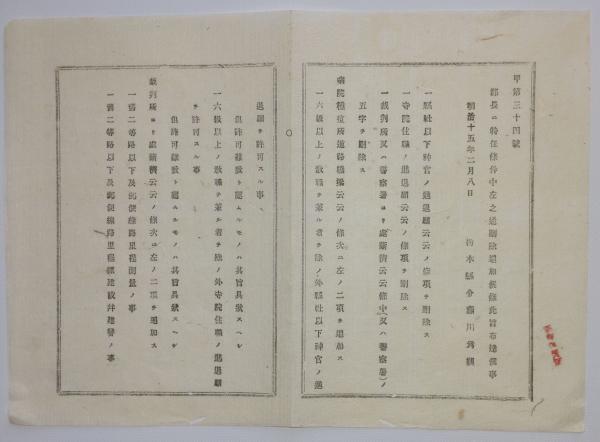 甲第三十四號
郡長ニ特任條件中左之通刪除追加候條此旨布達候事
明治十五年二月八日
栃木縣令藤川爲親
一縣社以下神官ノ進退願云云ノ條項ヲ刪除ス
一寺院住職ノ進退願云云ノ條項ヲ刪除ス
一裁判所又ハ警察署ヨリ處斷濟云云條中(又ハ警察署)ノ
五字ヲ刪除ス
病院種痘所道路橋梁云云ノ條次ニ左ノ二項ヲ追加ス
一六級以上ノ敎職ヲ兼ル者ヲ除ノ外縣社以下神官ノ進
退願ヲ許可スル事
但許可難致ト認ムルモノハ其旨具狀スヘシ
一六級以上ノ敎職ヲ兼ル者ヲ除ノ外寺院住職ノ進退願
ヲ許可スル事
但許可難致ト認ムルモノハ其旨具狀スヘシ
裁判所ヨリ處斷濟云云ノ條次ニ左ノ二項ヲ追加ス
一舊二等路以下及郵便線路里程測量ノ事
一舊二等路以下及郵便線路里程標建設幷建替ノ事